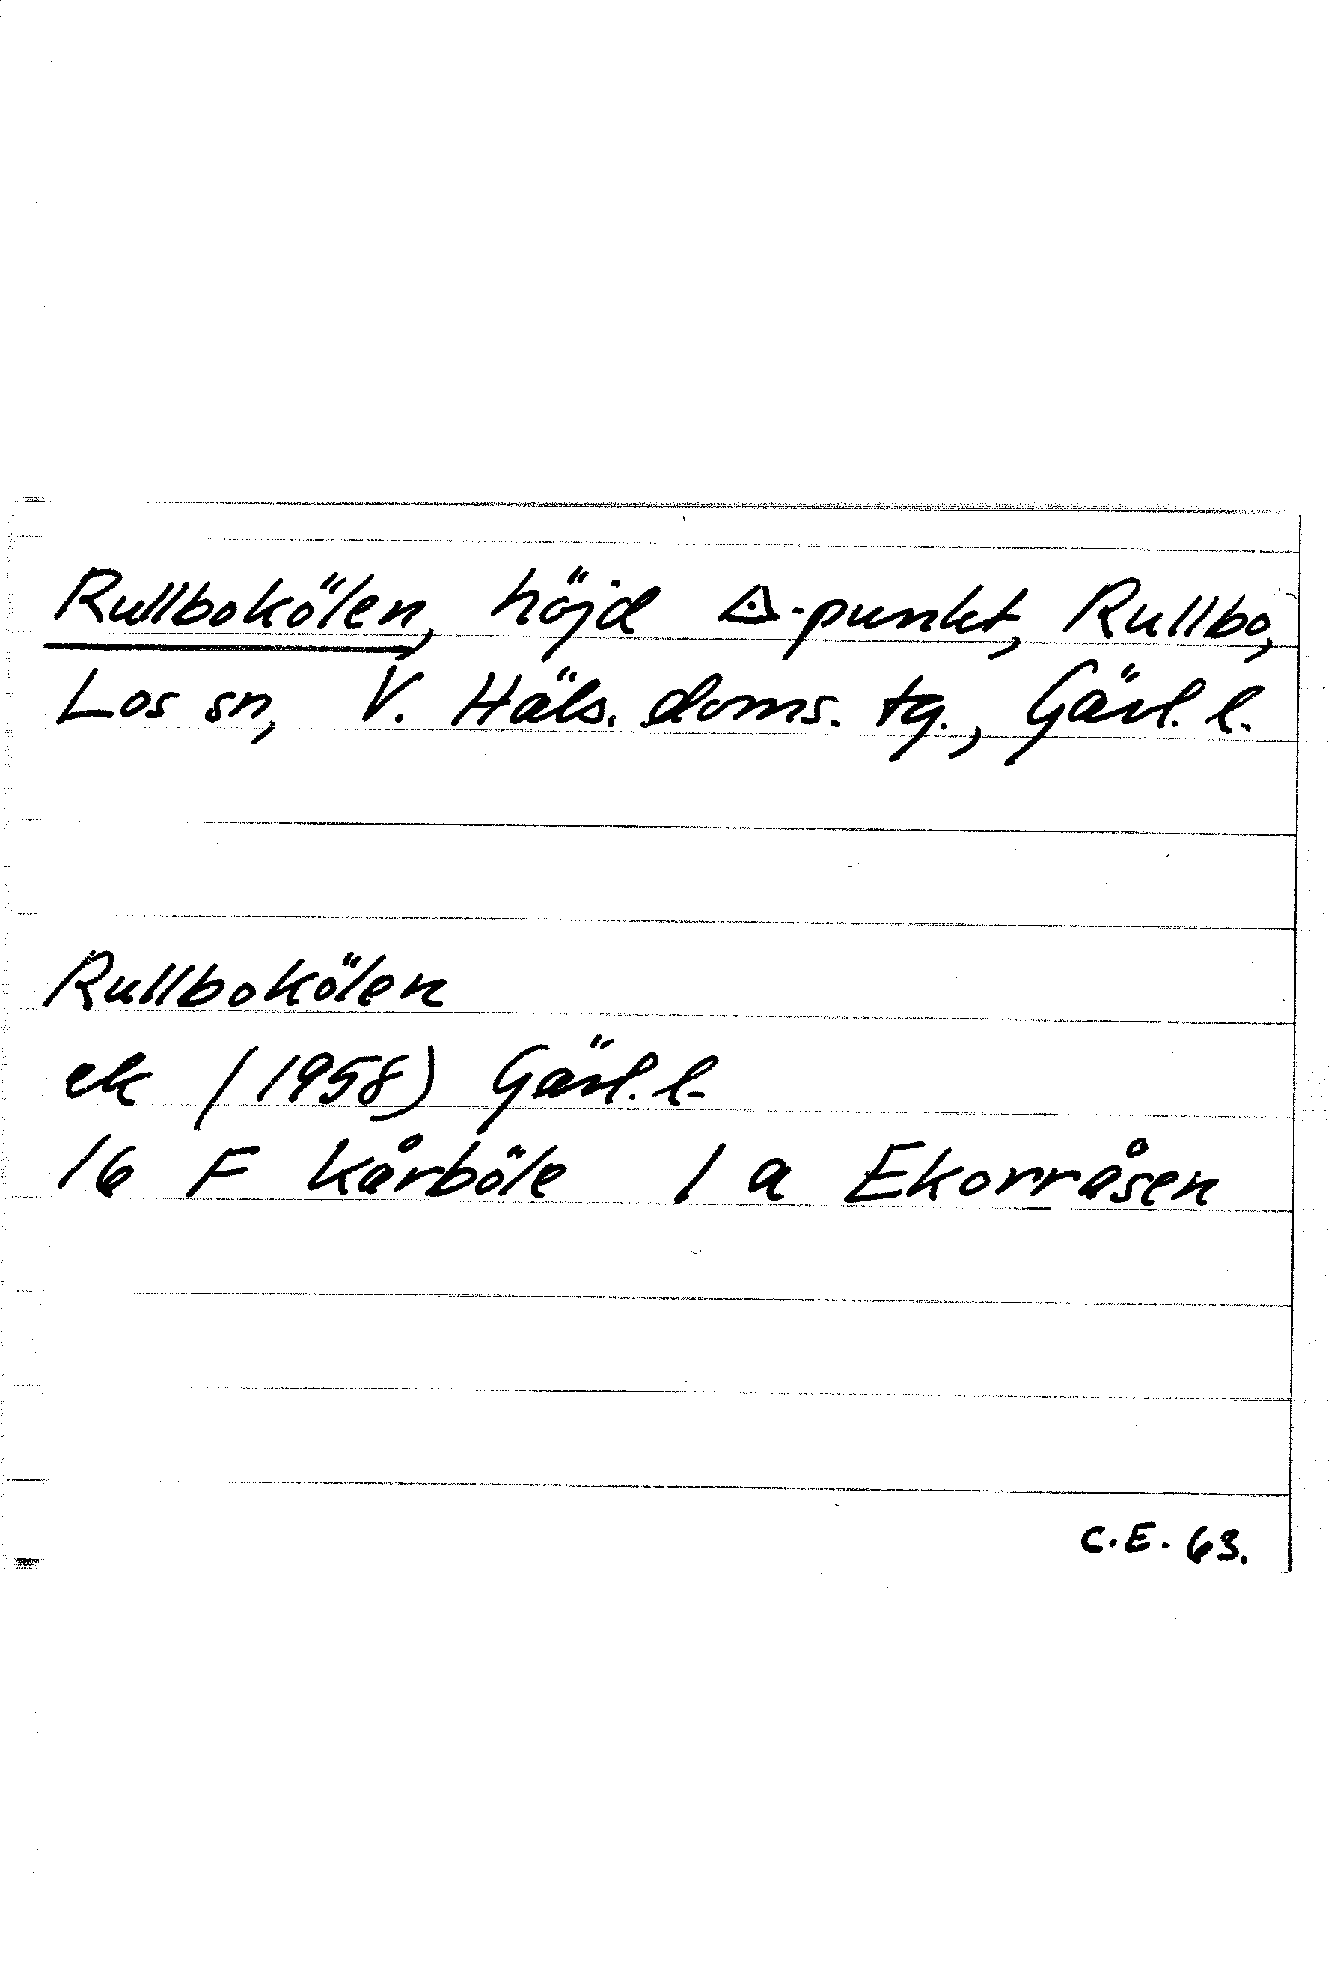 Rullbokölen, höjd △-punkt, Rullbo,
Los sn, V. Häls. doms. tg., Gävl. l.
Rullbokölen
ek (1958) Gävl. l.
16 F Kårböle 1 a Ekorråsen
C.E. 63.